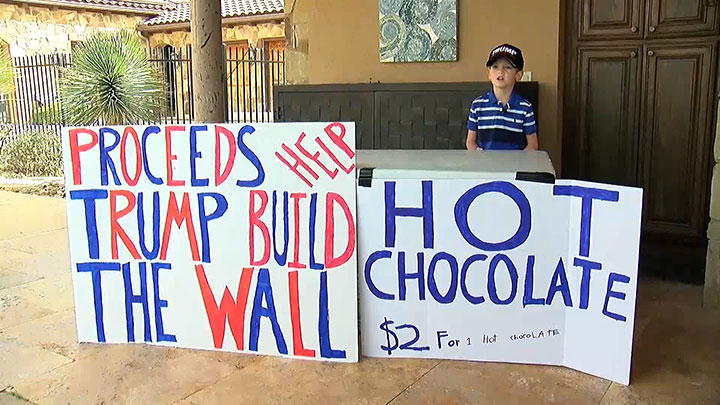 TRUMP
PROCEEDS HELP
TRUMP BUILD
THE WALL
HOT
CHOCOLATE
$2 For 1 Hot chocoLATE